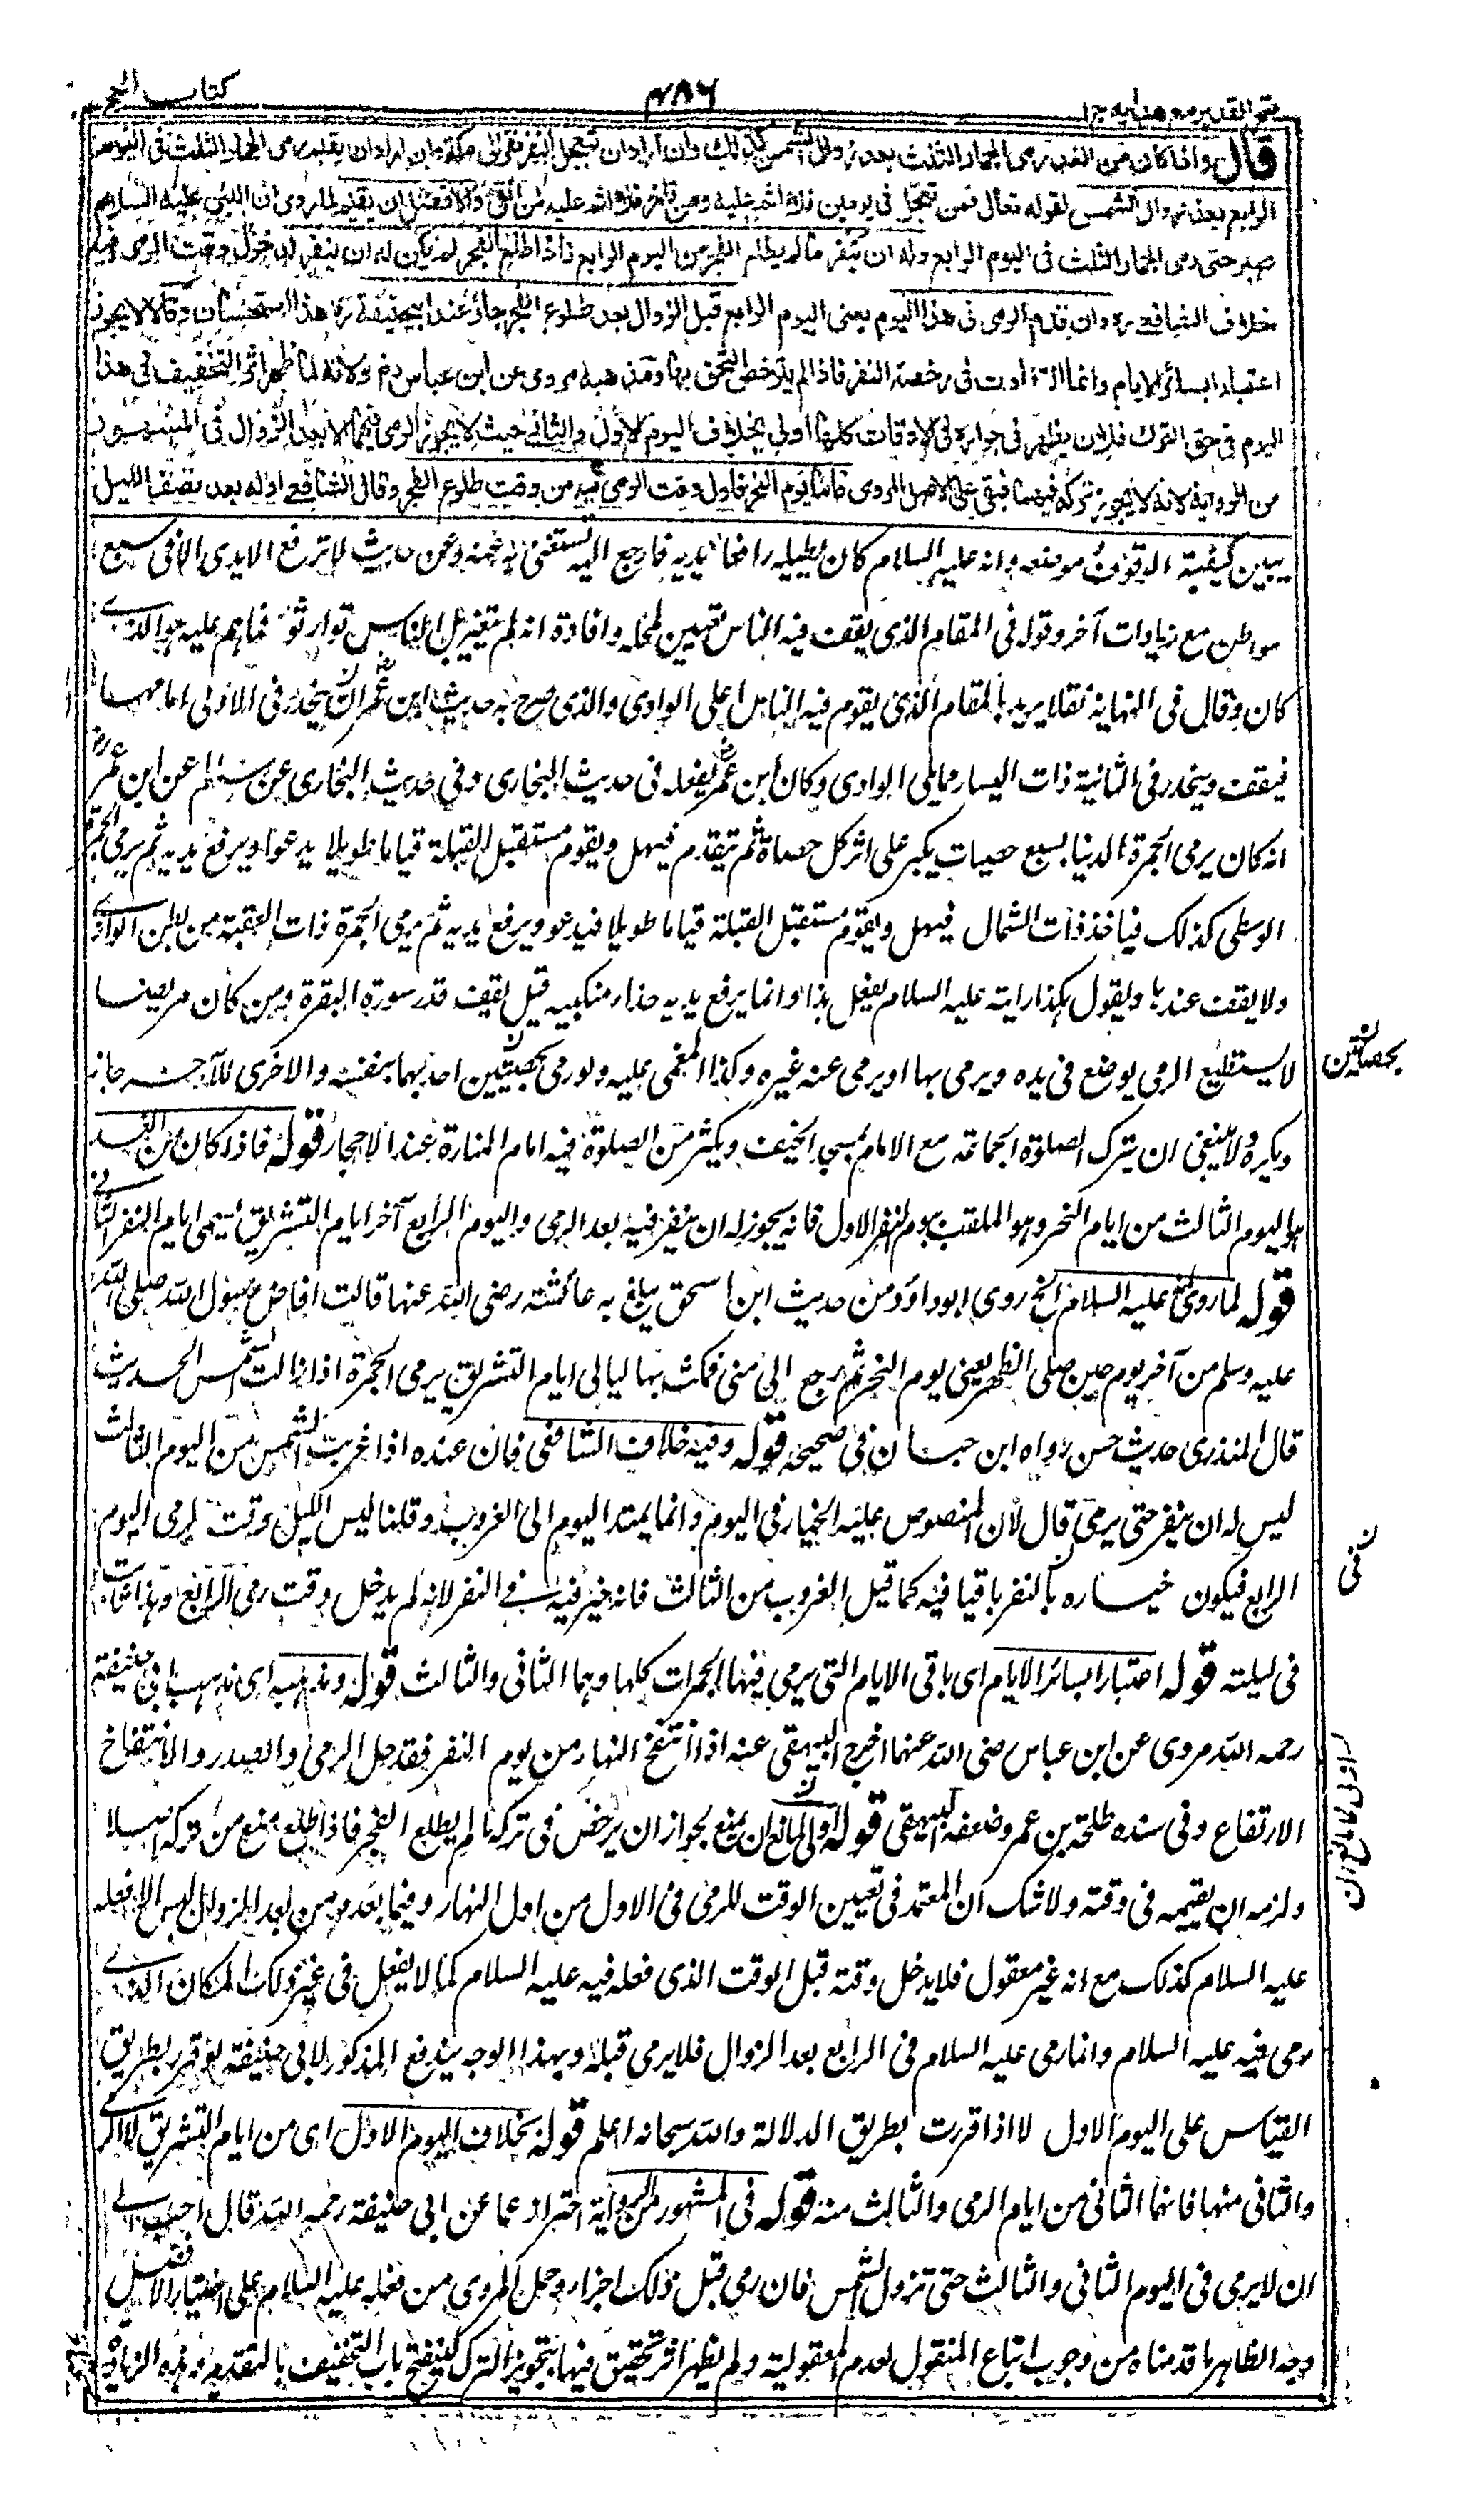 فتح القدير مع هدايه ج ١
٤٨٦
كتاب الحج
قال واذا كان من الغد رمى الجمار الثلث بعد زوال الشمس كذلك وان اراد ان يتعجل النفر نفر الى مكة وان اراد ان يقيم رمى الجمار الثلث فى اليوم
الرابع بعد زوال الشمس لقوله تعالى فمن تعجل فى يومين فلا اثم عليه ومن تأخر فلا اثم عليه لمن اتقى والافضل ان يقيم لما روى ان النبى عليه السلام
صبر حتى رمى الجمار الثلث فى اليوم الرابع وله ان ينفر ما لم يطلع الفجر من اليوم الرابع فاذا طلع الفجر لم يكن له ان ينفر لدخول وقت الرمى وفيه
خلاف الشافعى ره وان قدم الرمى فى هذا اليوم يعنى اليوم الرابع قبل الزوال بعد طلوع الفجر جاز عند ابى حنيفة ره هذا استحسان وقالا لا يجوز
اعتبارا بسائر الايام وانما التفاوت فى رخصة النفر فاذا لم يترخص التحق بها ومذهبه مروى عن ابن عباس رض ولانه لما ظهر اثر التخفيف فى هذا
اليوم فى حق الترك فلان يظهر فى جوازه فى الاوقات كلها اولى بخلاف اليوم الاول والثانى حيث لا يجوز الرمى فيهما الا بعد الزوال فى المشهور
من الرواية لانه لا يجوز تركه فيهما فبقى على الاصل المروى فاما يوم النحر فاول وقت الرمى فيه من وقت طلوع الفجر وقال الشافعى اوله بعد نصف الليل
يبين كيفية الوقوف موضعه وانه عليه السلام كان يطيله رافعا يديه فارجع اليه تستغنى به عنه وعن حديث لا ترفع الايدى الا فى سبع
مواطن مع زيادات آخر وقوله فى المقام الذى يقف فيه الناس تعيين لمحله وافادة انه لم يتغير بل الناس توارثوه فما هم عليه هو الذى
كان وقال فى النهاية نقلا يريد بالمقام الذى يقوم فيه الناس اعلى الوادى والذى صرح به حديث ابن عمر رض ان ينحدر فى الاولى امامها
فيقف وينحدر فى الثانية ذات اليسار مما يلى الوادى وكان ابن عمر رض يفعله فى حديث البخارى وفى حديث البخارى عن سالم عن ابن عمر رض
انه كان يرمى الجمرة الدنيا بسبع حصيات يكبر على اثر كل حصاة ثم يتقدم فيسهل ويقوم مستقبل القبلة قياما طويلا يدعو ويرفع يديه ثم يرمى الجمرة
الوسطى كذلك فياخذ ذات الشمال فيسهل ويقوم مستقبل القبلة قياما طويلا فيدعو ويرفع يديه ثم يرمى الجمرة ذات العقبة من بطن الوادى
ولا يقف عندها ويقول هكذا رايته عليه السلام يفعل هذا وانما يرفع يديه حذاء منكبيه قيل يقف قدر سورة البقرة ومن كان مريضا
لا يستطيع الرمى يوضع فى يده ويرمى بها او يرمى عنه غيره وكذا المغمى عليه ولو رمى بحصيتين احدهما بنفسه والاخرى للآخر جاز
بحصاتين ن
ويكره ولا ينبغى ان يترك الصلوة الجماعة مع الامام بمسجد الخيف ويكثر من الصلوة فيه امام المنارة عند الاحجار قوله فاذا كان من الغد
هو اليوم الثالث من ايام النحر وهو الملقب بيوم النفر الاول فانه يجوز له ان ينفر فيه بعد الرمى واليوم الرابع آخر ايام التشريق يسمى ايام النفر الثانى
قوله لما روى انه عليه السلام الخ روى ابوداود من حديث ابن اسحق يبلغ به عائشة رضى الله عنها قالت افاض رسول الله صلى الله
عليه وسلم من آخر يوم حين صلى الظهر يعنى يوم النحر ثم رجع الى منى فمكث بها ليالى ايام التشريق يرمى الجمرة اذا زالت الشمس الحديث
قال المنذرى حديث حسن رواه ابن حبان فى صحيحه قوله وفيه خلاف الشافعى فان عنده اذا غربت الشمس من اليوم الثالث
ليس له ان ينفر حتى يرمى قال لان المنصوص عليه الخيار فى اليوم وانما يمتد اليوم الى الغروب وقلنا ليس الليل وقت لرمى اليوم
الرابع فيكون خياره بالنفر باقيا فيه كما قبل الغروب من الثالث فانه خير فيه فى النفر لانه لم يدخل وقت رمى الرابع وهذا ثابت
فى ن
فى ليلته قوله اعتبارا بسائر الايام اى باقى الايام التى يرمى فيها الجمرات كلها وهما الثانى والثالث قوله ومذهبه اى مذهب ابى حنيفة
رحمه الله مروى عن ابن عباس رضى الله عنهما اخرج البيهقى عنه اذا انتفخ النهار من يوم النفر فقد حل الرمى والصدر والانتفاخ
الارتفاع وفى سنده طلحة بن عمرو ضعفه البيهقى قوله اولى لمانع ان يمنع لجواز ان يرخص فى تركه ما لم يطلع الفجر فاذا طلع منع من تركه اصلا
ولزمه ان يقيمه فى وقته ولا شك ان المعتمد فى تعيين الوقت للرمى فى الاول من اول النهار وفيما بعده من بعد الزوال ليس الا فعله
عليه السلام كذلك مع انه غير معقول فلا يدخل وقته قبل الوقت الذى فعله فيه عليه السلام كما لا يفعل فى غير ذلك المكان الذى
رمى فيه عليه السلام وانما رمى عليه السلام فى الرابع بعد الزوال فلا يرمى قبله وبهذا الوجه يندفع المذكور لابى حنيفة لو قرر بطريق
القياس على اليوم الاول لا اذا قررت بطريق الدلالة والله سبحانه اعلم قوله بخلاف اليوم الاول اى من ايام التشريق لا الرمى
والثانى منها فانهما الثانى من ايام الرمى والثالث منه قوله فى المشهور من الرواية احتراز عما عن ابى حنيفة رحمه الله قال احب الى
ان لا يرمى فى اليوم الثانى والثالث حتى تزول الشمس فان رمى قبل ذلك اجزاه وحمل المروى من فعله عليه السلام على اختيار الافضل
وجه الظاهر ما قدمناه من وجوب اتباع المنقول لعدم المعقولية ولم يظهر اثر تخفيف فيها بتجويز الترك لينفتح باب التخفيف بالتقديم وهذه الزيادة